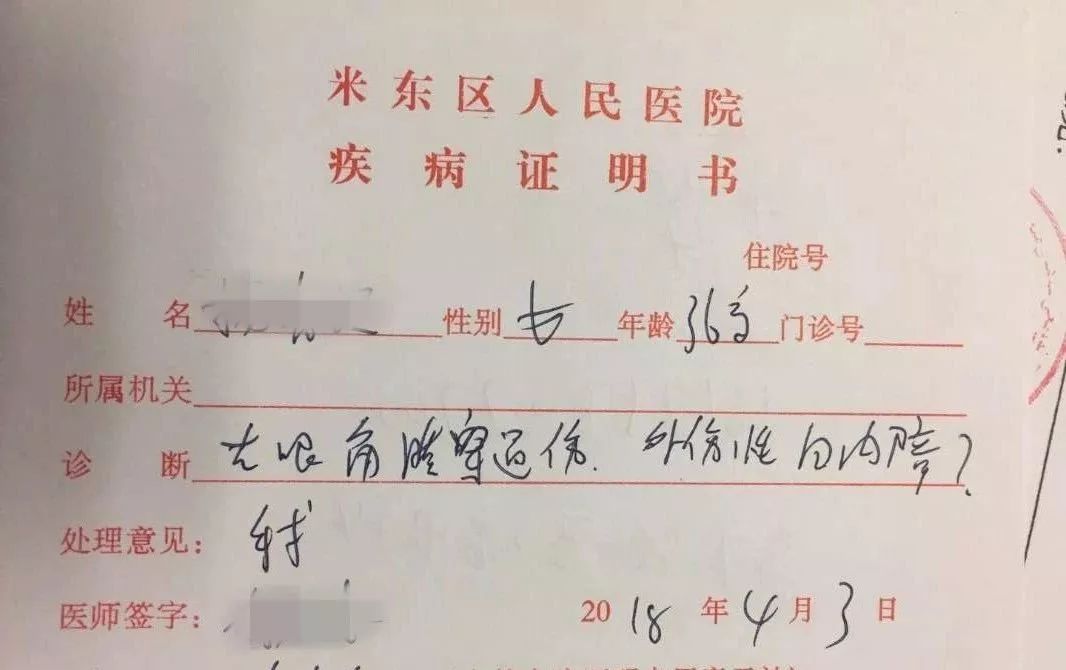 米东区人民医院
疾病证明书
住院号
姓名 性别 女 年龄 36岁 门诊号
所属机关
诊断 右眼角膜穿通伤. 外伤性白内障?
处理意见:
医师签字: 2018年4月3日